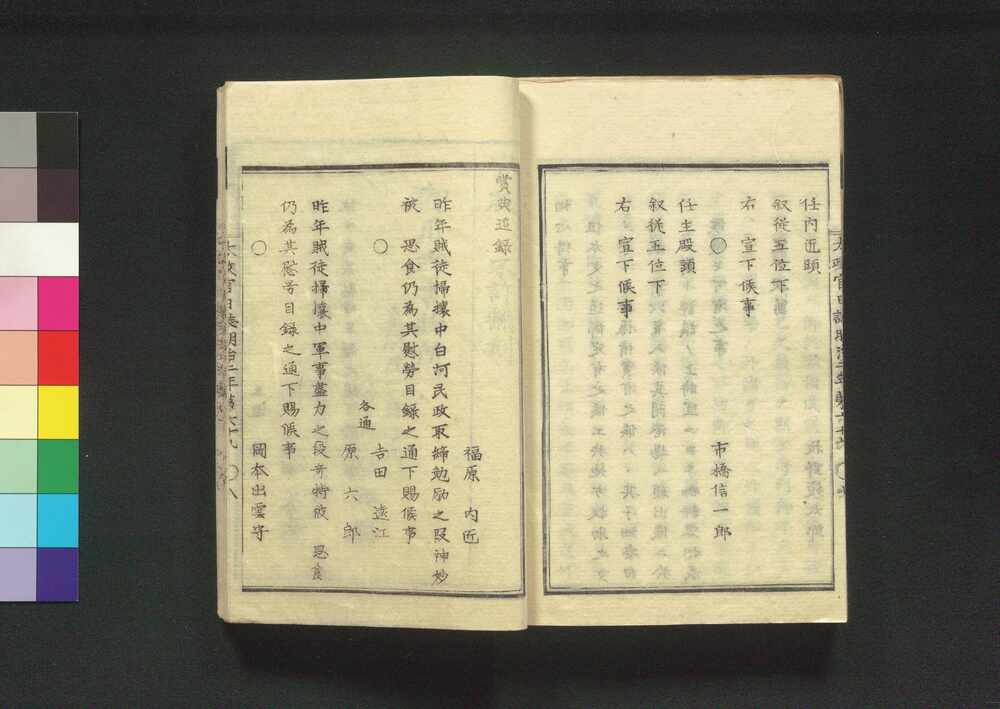 任内匠頭
叙従五位下
右　宣下候事
○
市橋信一郎
任主殿頭
叙従五位下
右　宣下候事
賞典追録
福原　内匠
昨年賊徒掃攘中白河民政取締勉励之段神妙
被　思食仍為其慰労目録之通下賜候事
○
各通
吉田　遠江
原　六　郎
昨年賊徒掃攘中軍事盡力之段奇特被　思食
仍為其慰労目録之通下賜候事
○
岡本出雲守
太政官日誌明治二年第六十九　○八